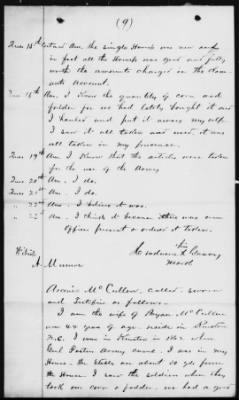 (9)
Ques 15th Ans. the single House was new and
in fact all the House was good and fully
worth the amount charged in the
account.
Ques 18th Ans. I know the quantity of corn and
fodder for we had lately bought it and
I hauled and put it away myself
I saw it all taken and used, it was
all taken in my presence.
Ques 19th Ans. I know that the articles were taken
for the use of the Army
Ques 20th Ans. I do.
Ques 21st Ans. I do.
" 22nd Ans. I believe it was.
" Ans. I think it because there was some
Officer present & ordered it taken.
his
mark
Witness
A. Munroe
McCullen, called, sworn
and Testifies as follows.
I am the wife of Bryan McCullen
am 44 years of age. reside in Kinston
N.C. I was in Kinston in 1862 when
Genl Foster Army came. I was in my
House. the Stable are about 50 yds from
the House. I saw the soldiers when they
took our corn & fodder. we had a good